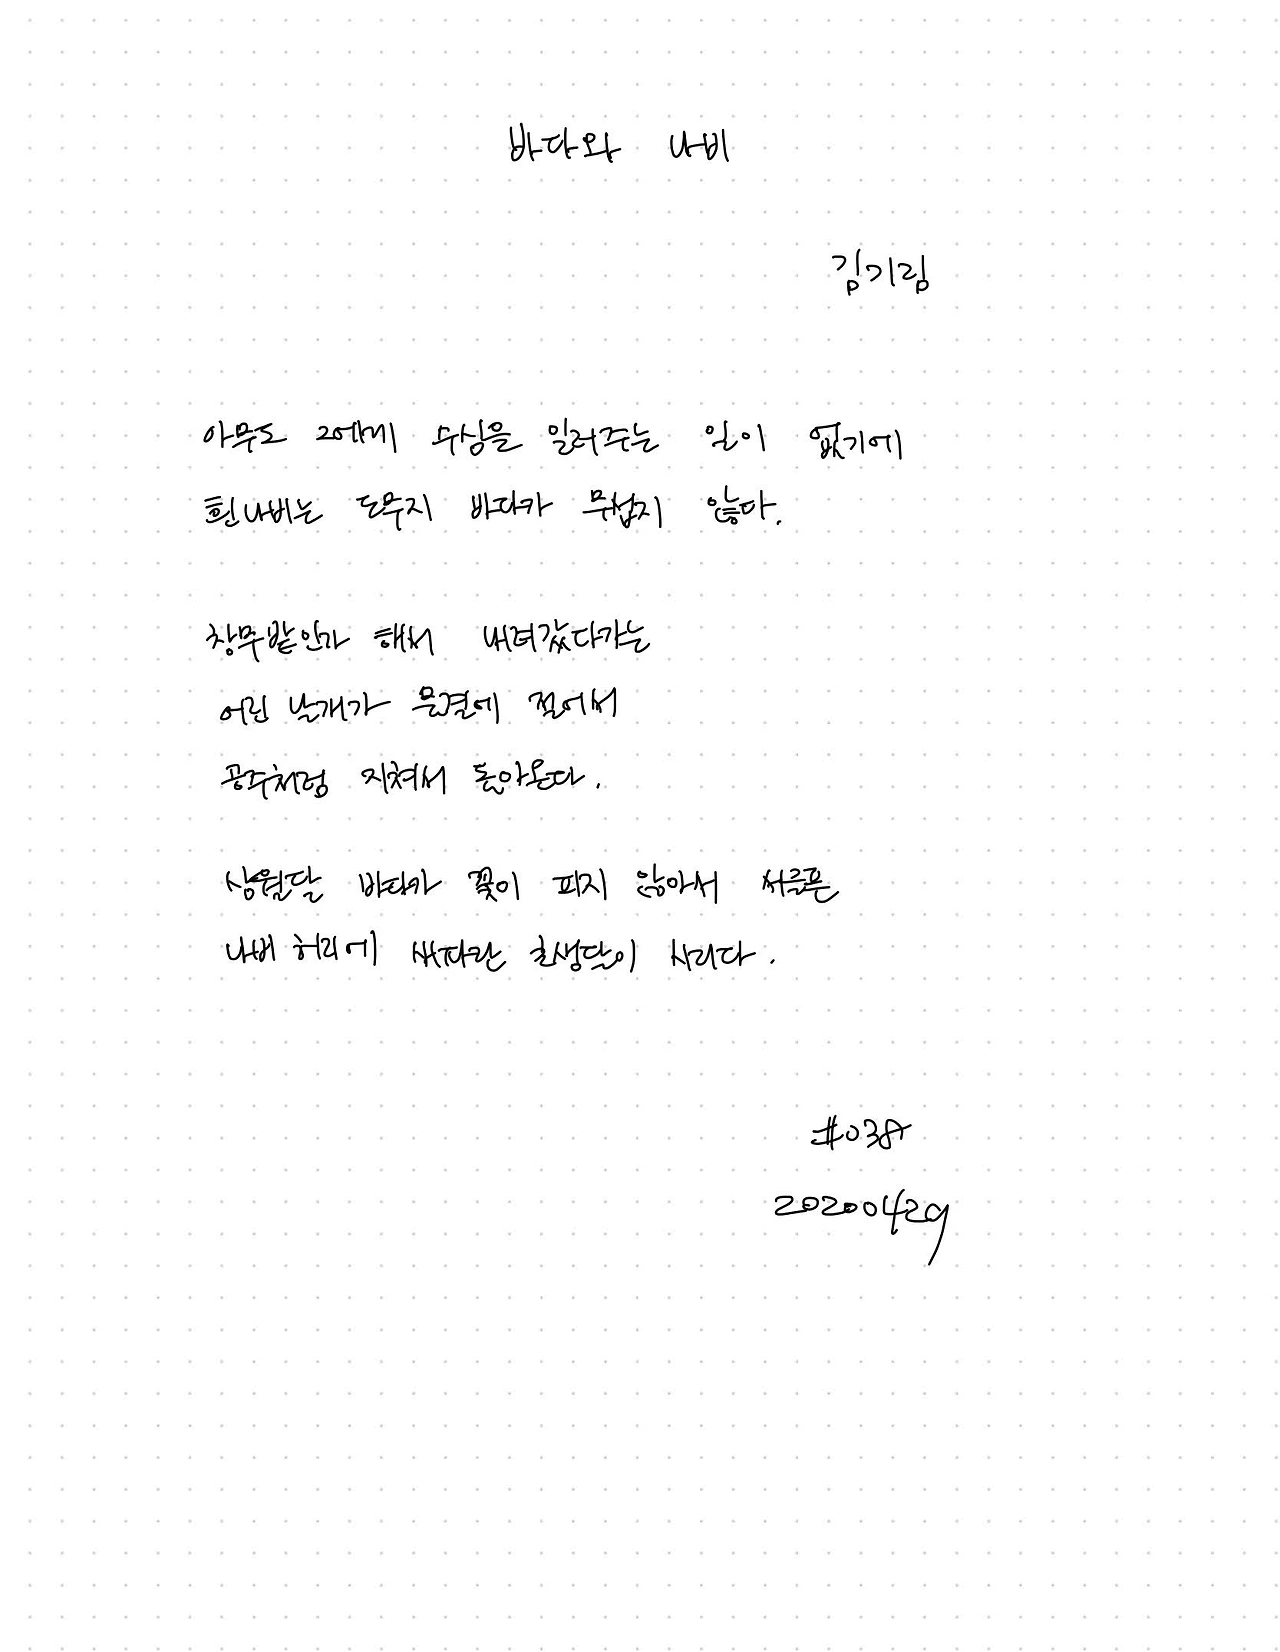 바다와 나비
김기림
아무도 그에게 수심을 일러주는 일이 없기에
흰나비는 도무지 바다가 무섭지 않다.
청무밭인가 해서 내려갔다가는
어린 날개가 물결에 절어서
공주처럼 지쳐서 돌아온다.
삼월달 바다가 꽃이 피지 않아서 서글픈
나비 허리에 새파란 초생달이 시리다.
#038
20200429